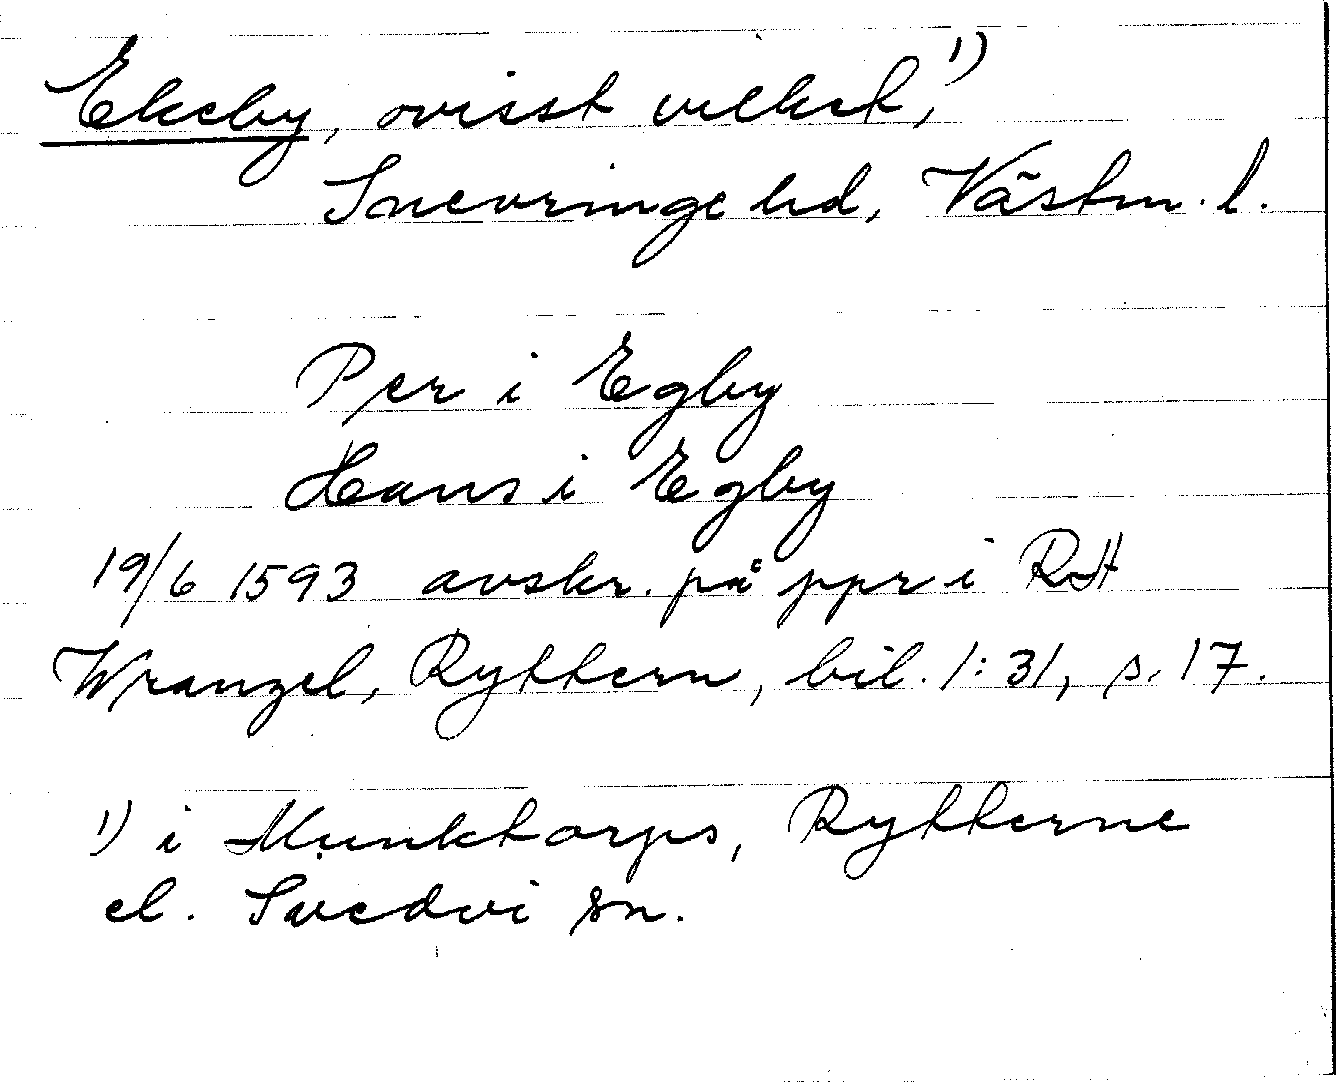 Ekeby, ovisst vilket,¹⁾
Snevringe hd, Västm. l.
Per i Egby
Hans i Egby
19/6 1593 avskr. på ppr i RA
Wranzel, Ryttern, bil. 1:31, s. 17.
¹⁾ i Munktorps, Rytterne
el. Svedvi sn.